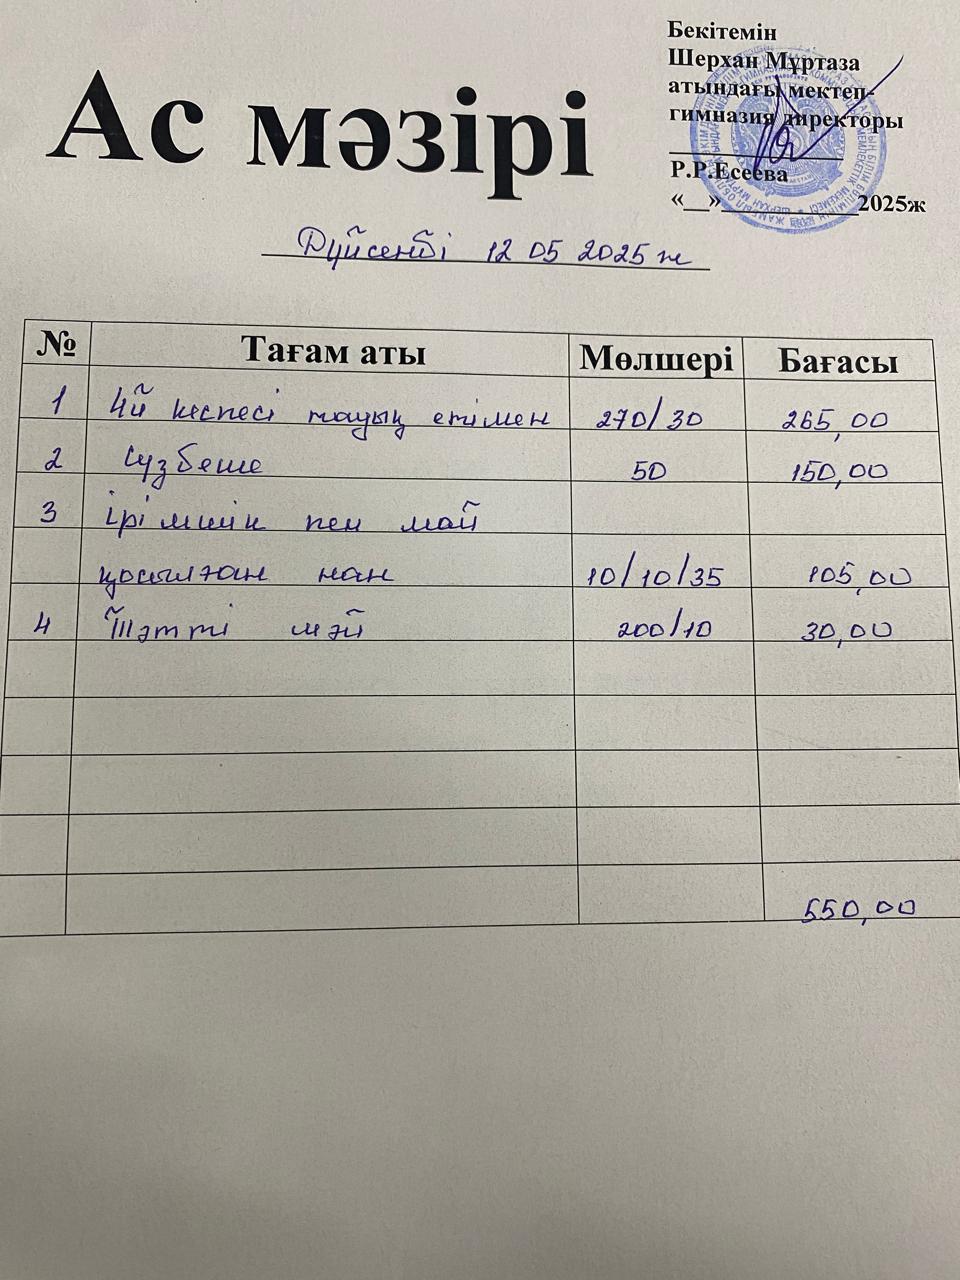 Бекітемін
Шерхан Мұртаза
атындағы мектеп-
гимназия директоры
Р.Р.Есеева
«__»____________2025ж
Ас мәзірі
Дүйсенбі 12 05 2025 ж
№ Тағам аты Мөлшері Бағасы
1 Үй кеспесі тауық етімен 270/30 265,00
2 Сүзбеше 50 150,00
3 Ірімшік пен май
қосылған нан 10/10/35 105,00
4 Тәтті шәй 200/10 30,00
550,00